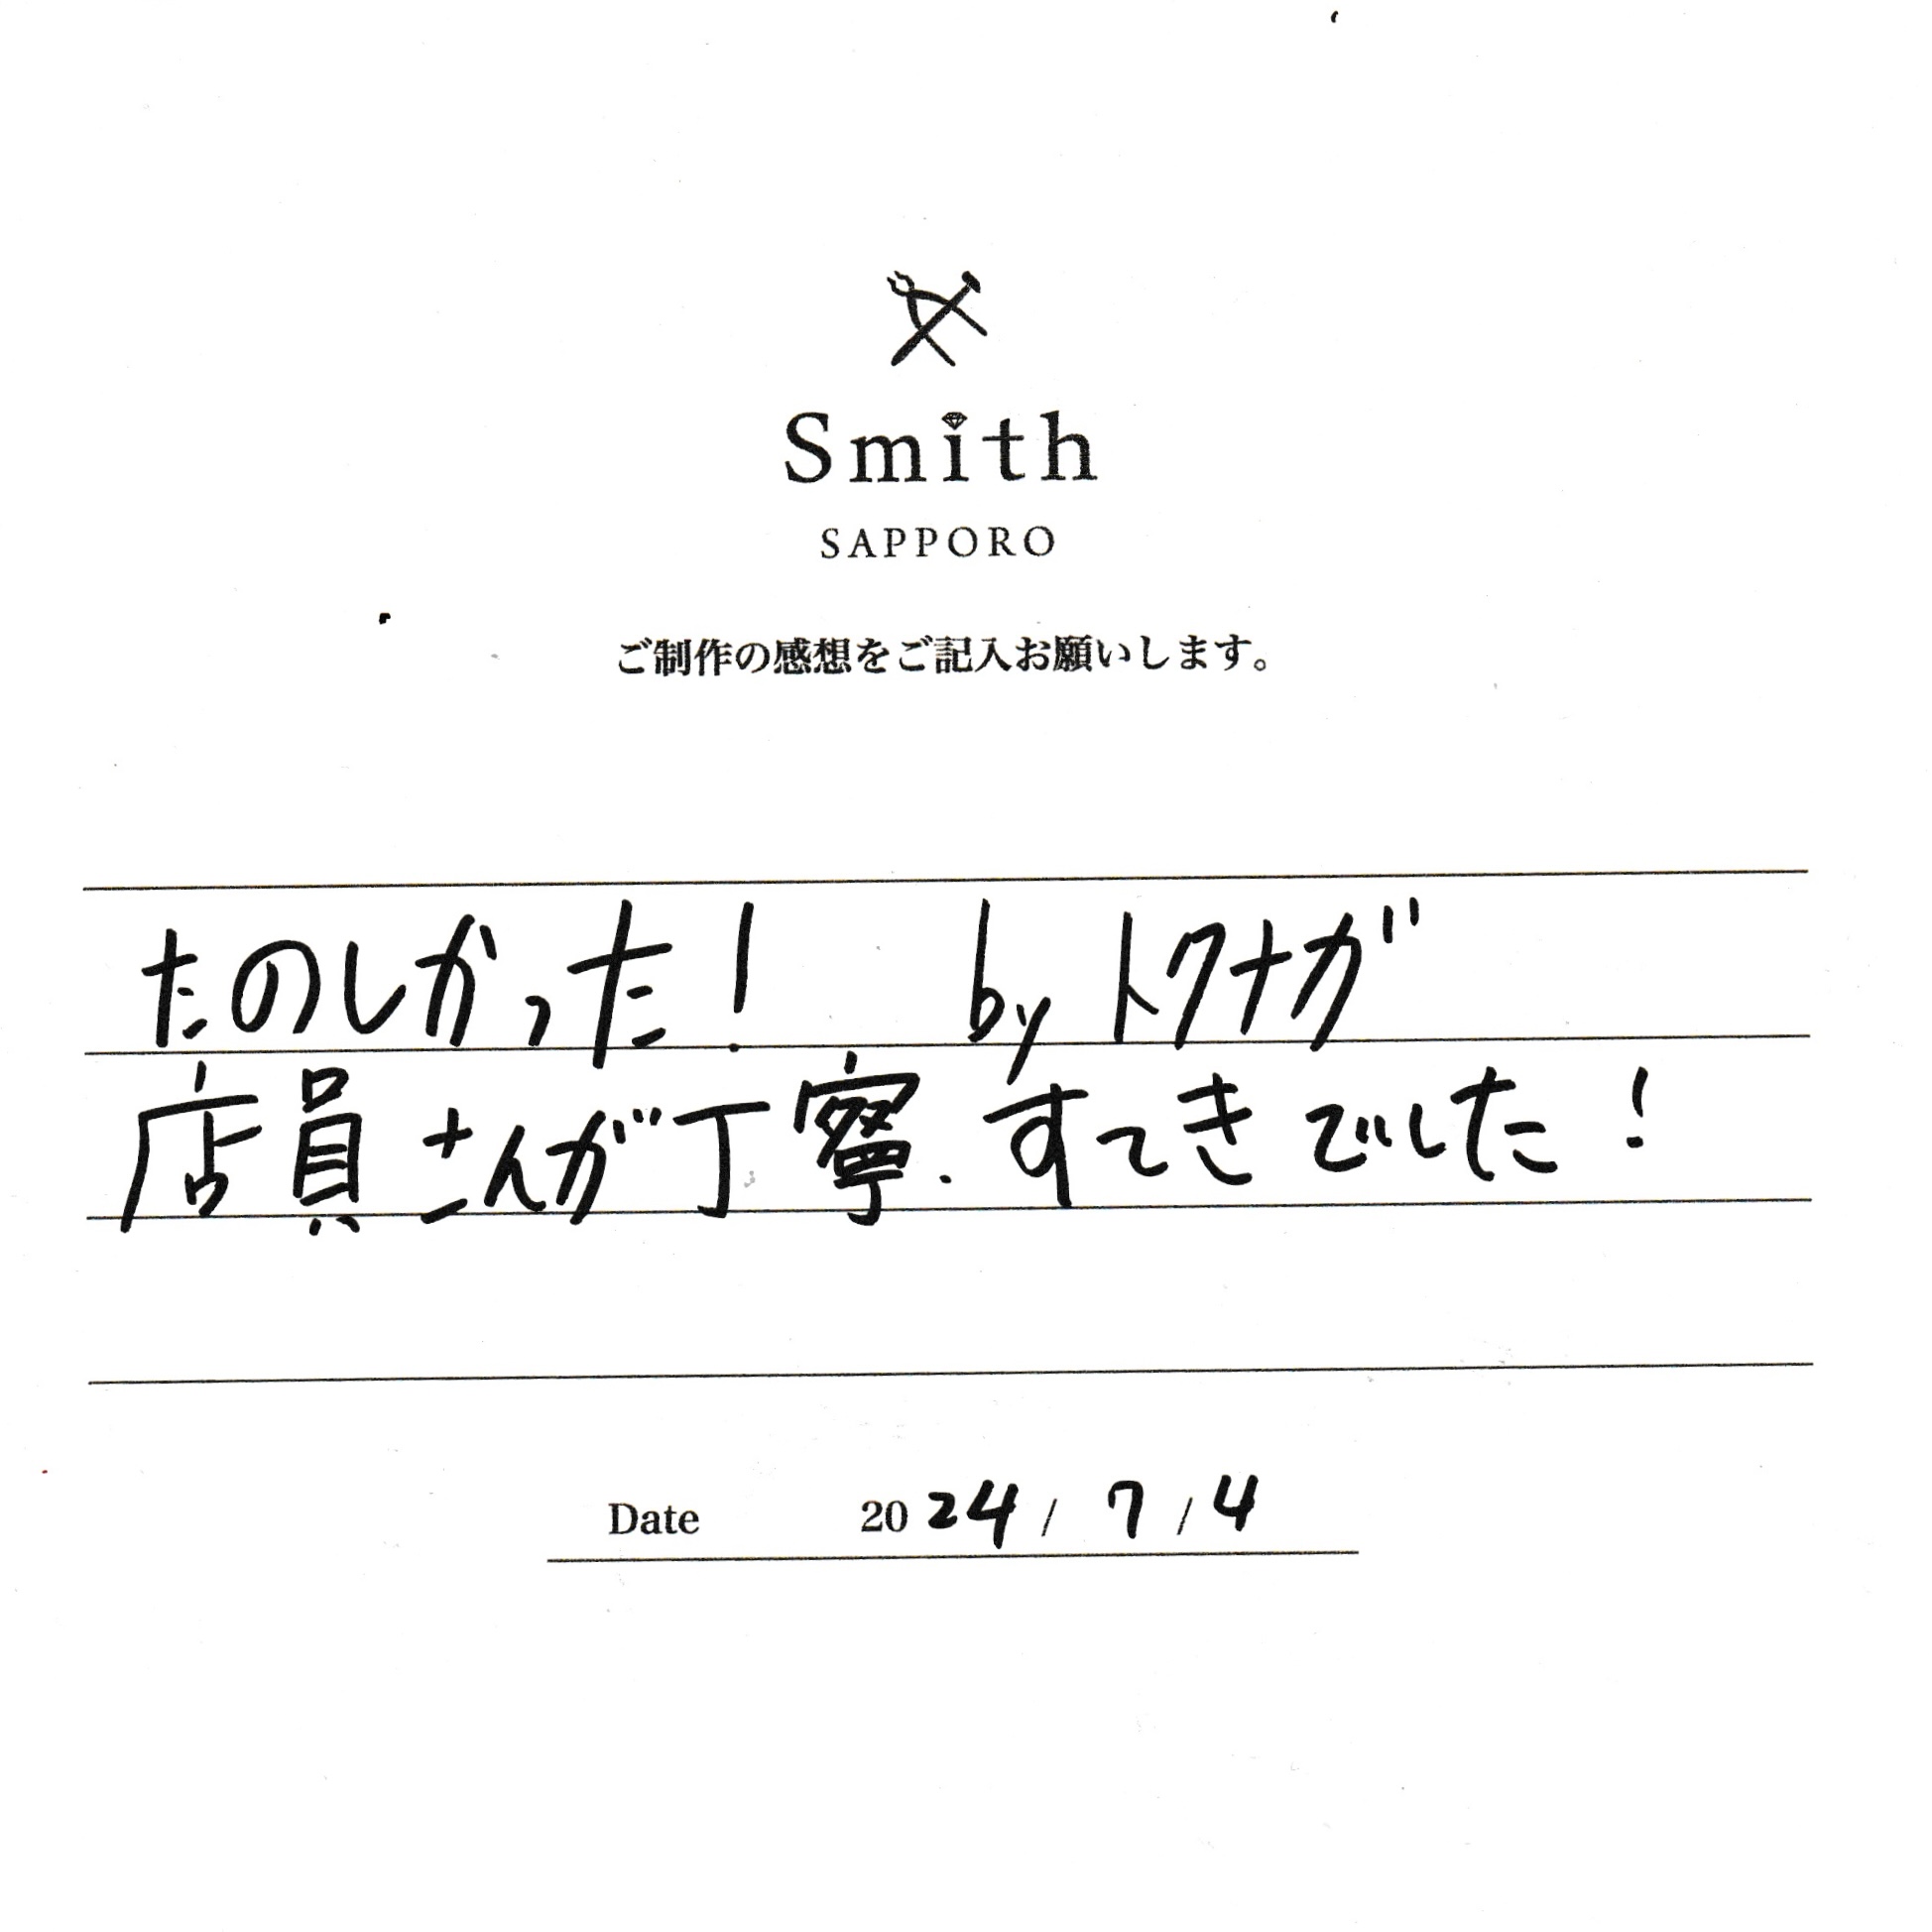 Smith
SAPPORO
ご制作の感想をご記入お願いします。
たのしかった! by トクナガ
店員さんが丁寧.すてきでした!
Date 2024 / 7 / 4